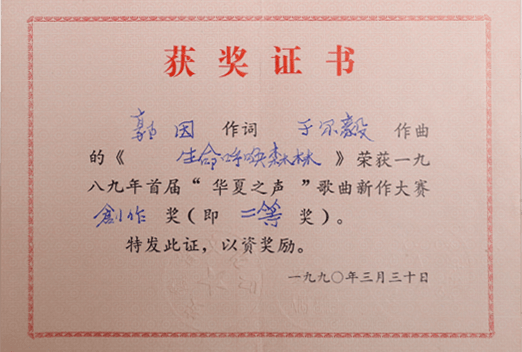 获奖证书
郭因 作词 于尔毅 作曲
的《 生命呼唤森林 》荣获一九
八九年首届“华夏之声”歌曲新作大赛
創作 奖(即 二等 奖)。
特发此证，以资奖励。
一九九〇年三月三十日